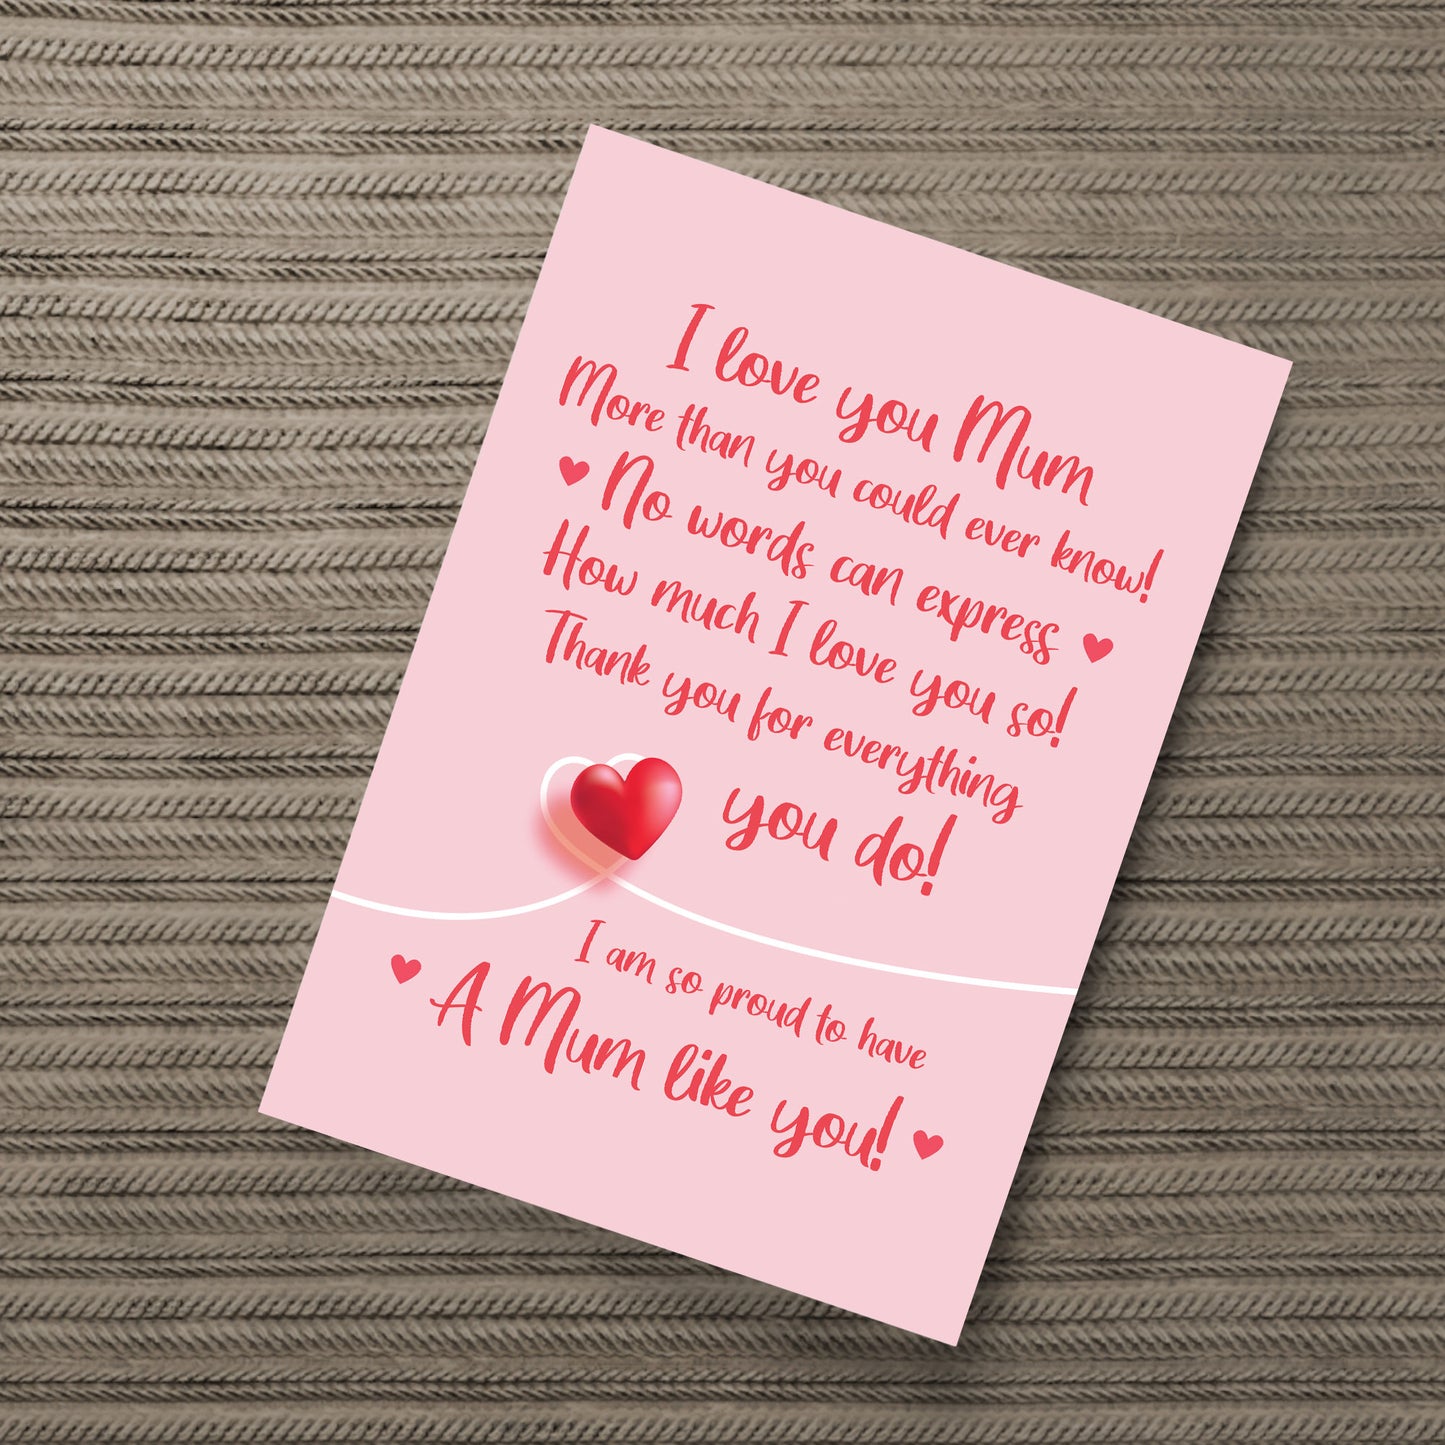 I love you Mum
More than you could ever know!
No words can express
How much I love you so!
Thank you for everything
you do!
I am so proud to have
A Mum like you!